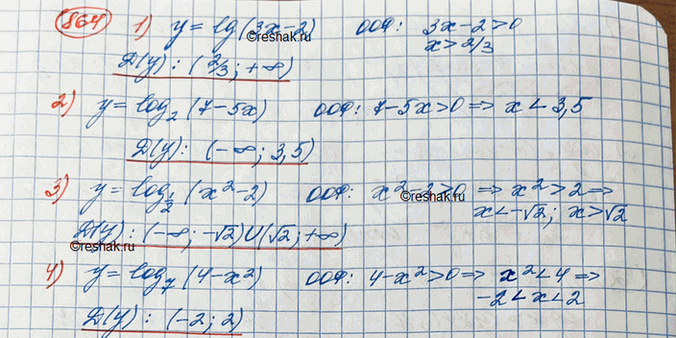 864 1) y = lg (3x-2) ООФ: 3x-2>0
x>2/3
Д(y): (2/3; +∞)
2) y = log₂ (7-5x) ООФ: 7-5x>0 => x<3,5
Д(y): (-∞; 3,5)
3) y = log½ (x²-2) ООФ: x²-2>0 => x²>2 =>
x<-√2; x>√2
Д(y): (-∞; -√2)U(√2; +∞)
4) y = log₇ (4-x²) ООФ: 4-x²>0 => x²<4 =>
-2<x<2
Д(y): (-2; 2)
©reshak.ru
©reshak.ru
©reshak.ru